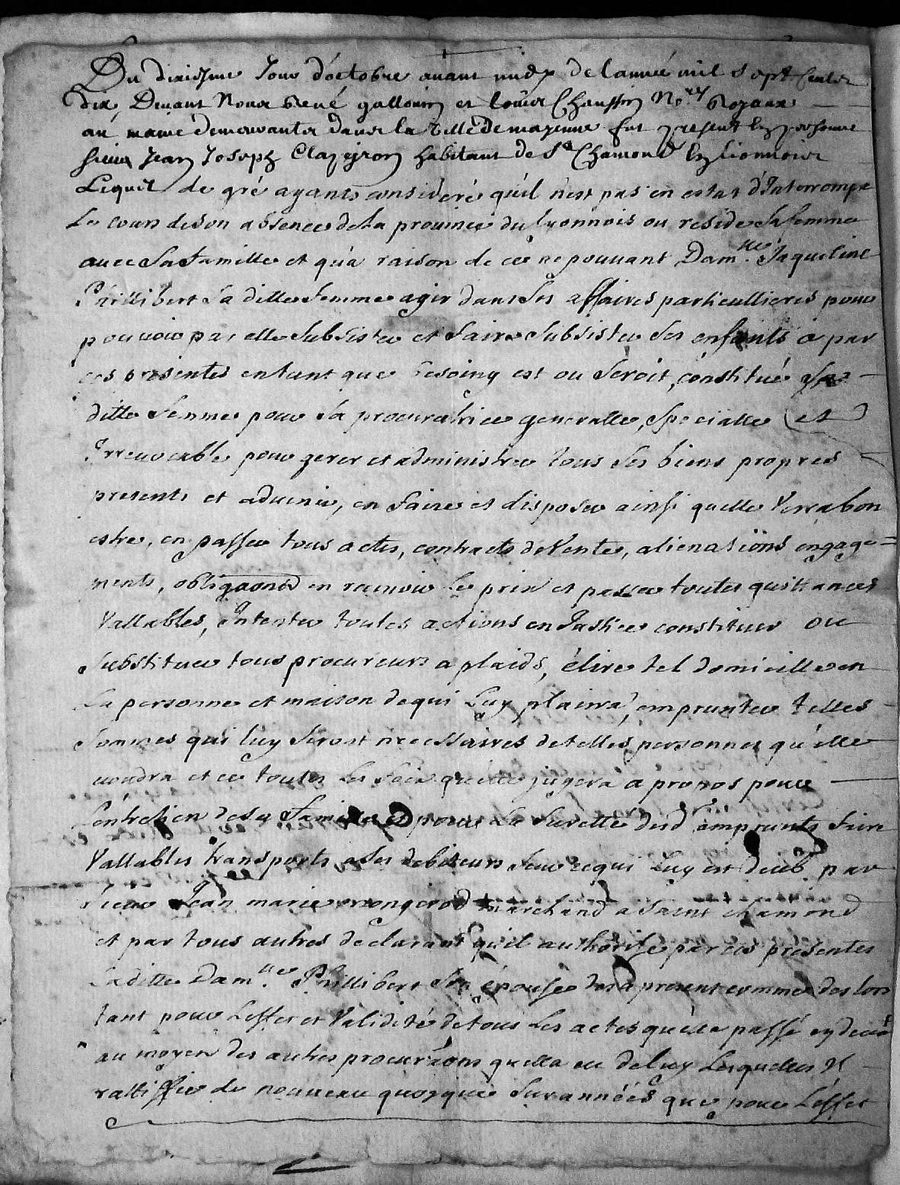 Du dixiesme Jour d'octobre avant midy de l'année mil sept Cents
dix Devant Nous René gallouin et louis Chaussin No.res Royaux
au maine demeurants dans la Ville de mayenne fut present En personne
sieur Jean Joseph Clapeyron habitant de St Chamond En lionnois
Lequel de gré ayant consideré qu'il n'est pas en estat d'Interrompre
Le cours de son absence de la province du lyonnois ou reside sa femme
avec sa famille et qu'a raison de ce ne pouvant Dam.lle Jaqueline
Phillibert sa ditte femme agir dans ses affaires particullieres pour
pouvoir par elle subsister et faire subsister ses enfants a par
ces presentes entant que besoing est ou seroit, constitué sa
ditte femme pour sa procuratrice generalle, specialle et
Irrevocable pour gerer et administrer tous ses biens propres
presents et advenir, en faire et disposer ainsi quelle Verra bon
estre, en passer tous actes, contracts de Vente, alienations engage=
ments, obligaons en recevoir le prix et passer toutes quittances
Vallables, Intenter toutes actions en Justice constituer ou
substituer tous procureurs a plaids, élire tel domicille en
La personne et maison de qui Luy plaira, emprunter telles
sommes qui luy seront necessaires de telles personnes qu'elle
voudra et ce toutes les fois quelle jugera a propos pour
L'entretien de sa famille et pour la surette desd. emprunts faire
Vallables transports a ses debiteurs sur ce qui Luy est deub par
sieur Jean marie marchand a saint chamond
et par tous autres declarant qu'il authorise par ces presentes
Laditte Dam.lle Phillibert son épouse des a present comme des lors
tant pour L'effet et Validité de tous Les actes quelle a passé cy devant
au moyen des autres procuraons quella eu de luy Lesquelles Il
rattiffie de nouveau quoyque surannées que pour L'effet